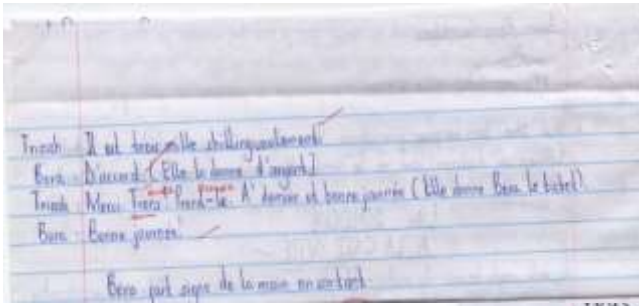 Trinah Il est trois mille shillings seulement!
Bera D'accord (Elle la donne d'argent)
Trinah Merci Prend-le A' dernier et bonne journée (Elle donne Bera le ticket)
Bera Bonne journée!
Bera part signe de la main en sortant